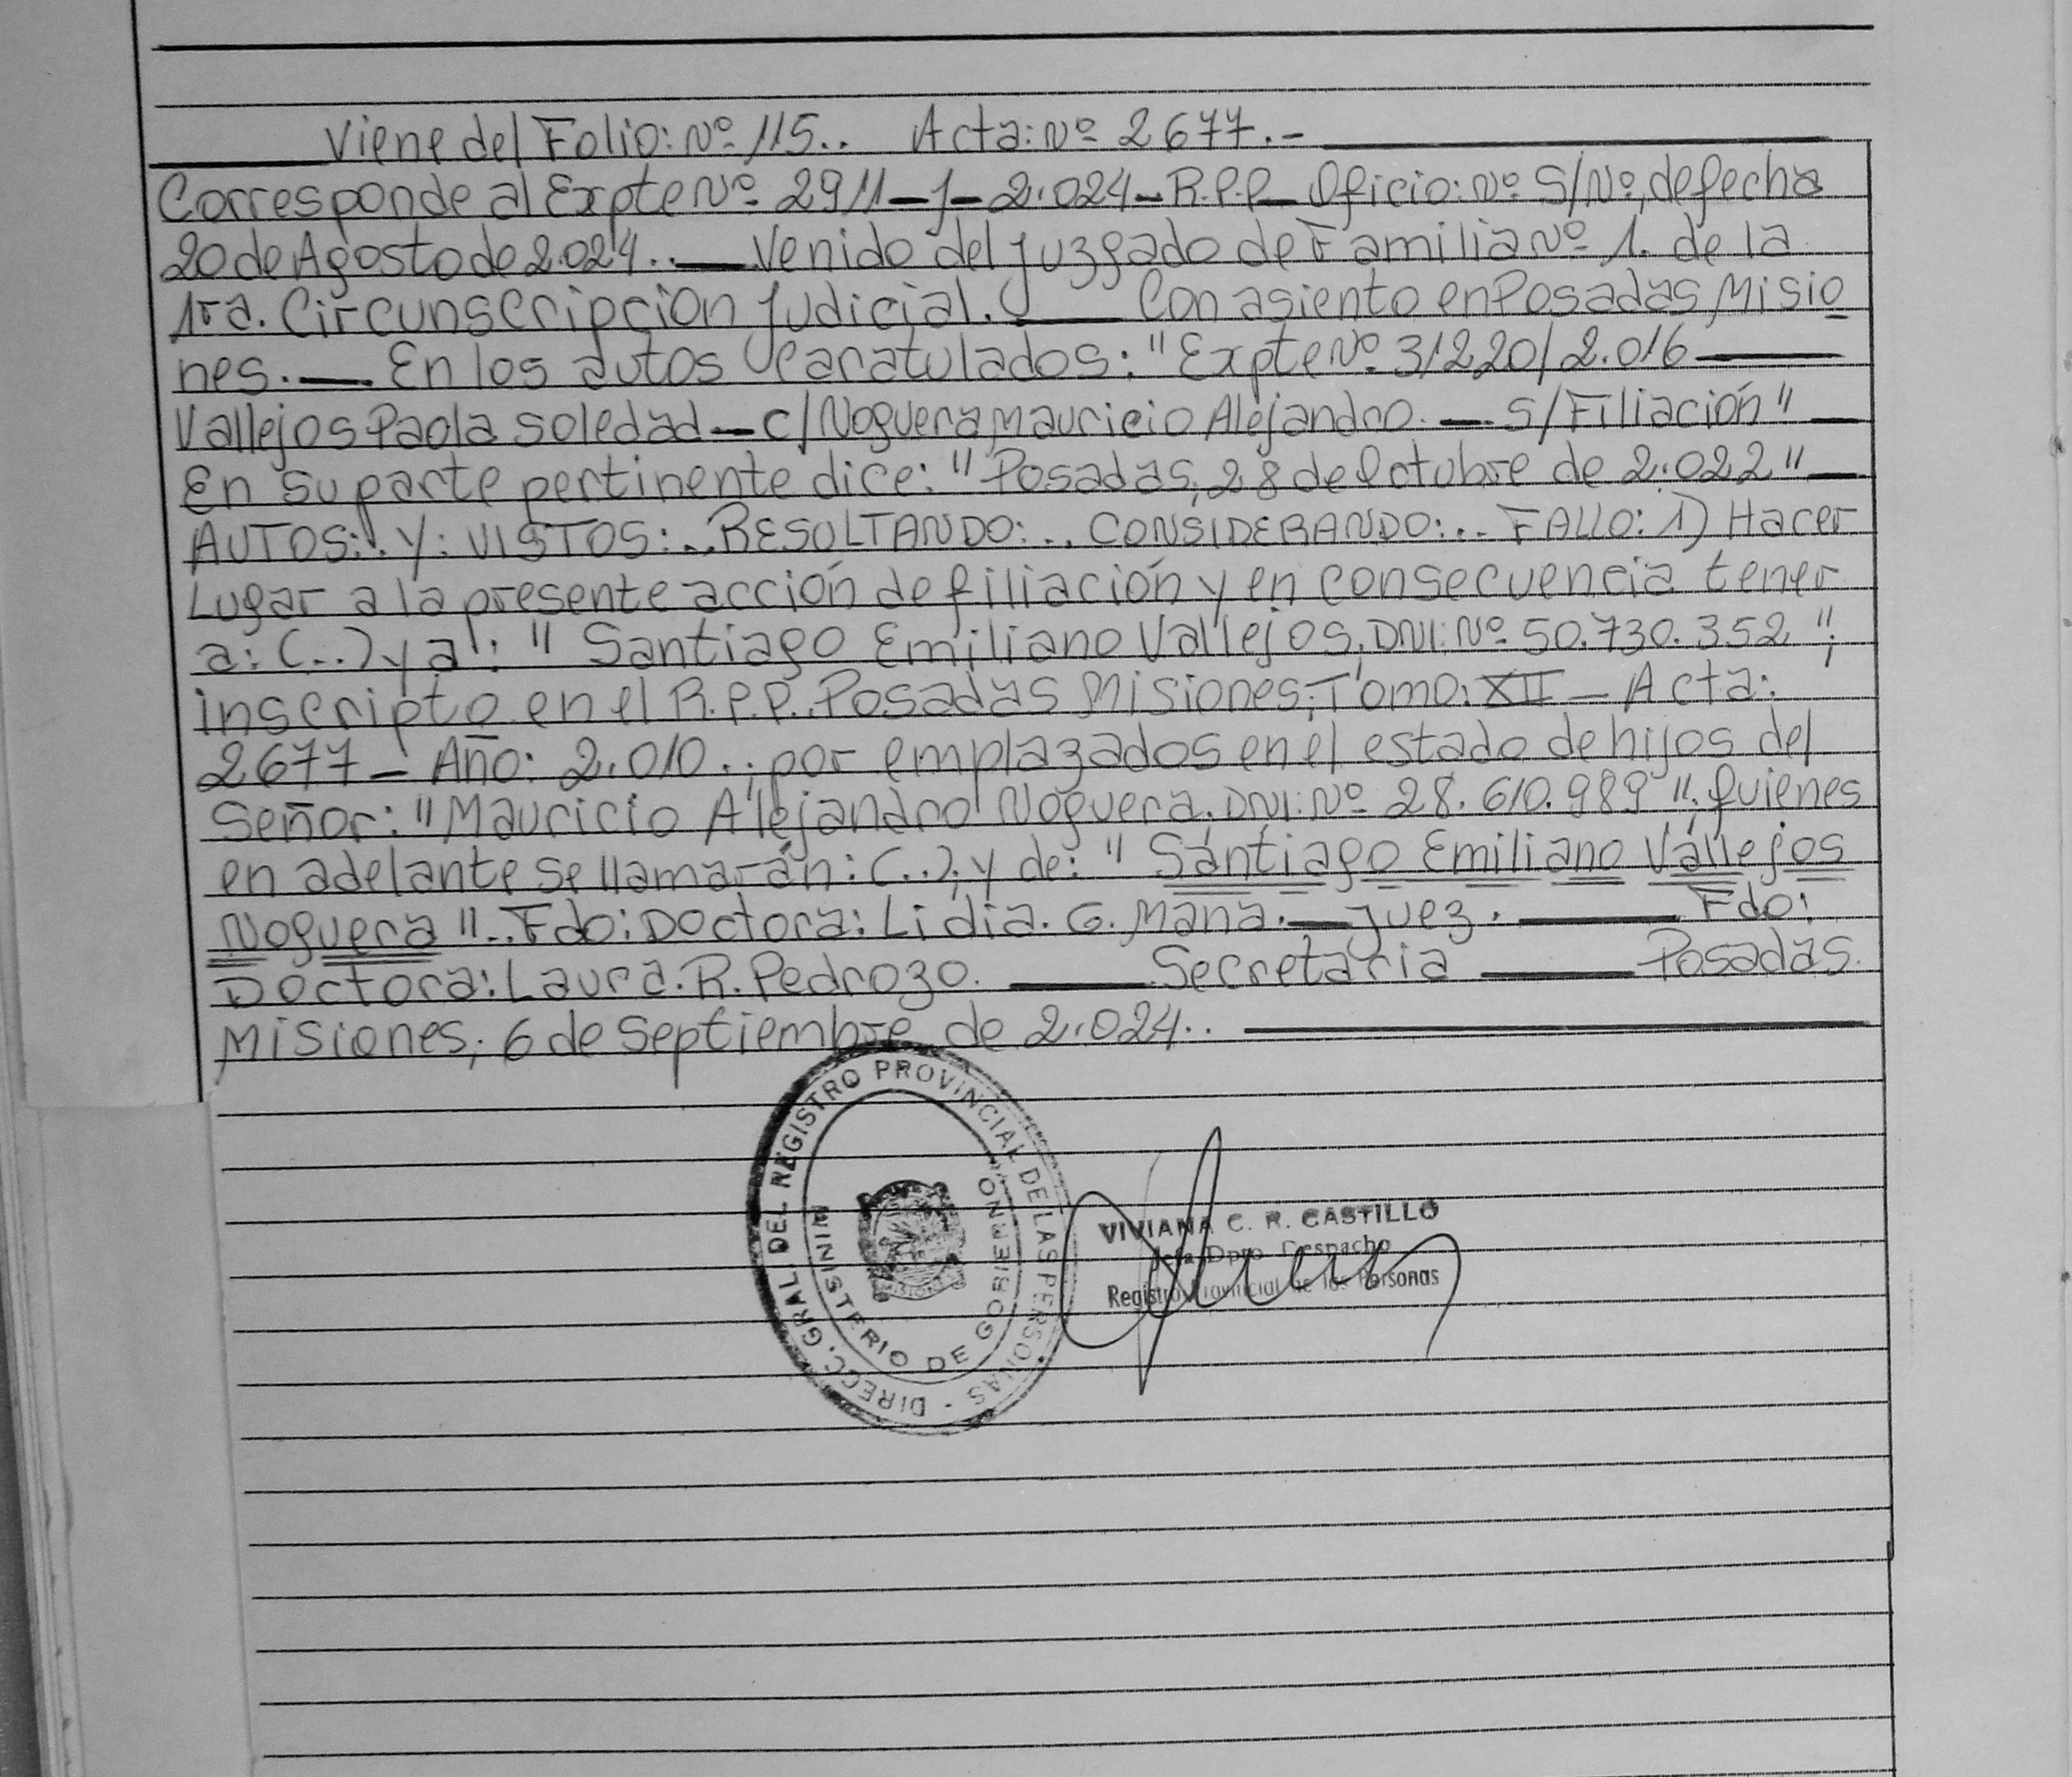 Viene del Folio: Nº 115.. Acta: Nº 2677.-
Corresponde al Expte Nº 2911-J-2.024-R.P.P_ Oficio: Nº S/Nº, de fecha
20 de Agosto de 2.024.. — Venido del Juzgado de Familia Nº 1. de la
1ra. Circunscripcion Judicial. — Con asiento en Posadas, Misio
nes. — En los autos caratulados: "Expte Nº 31220/2.016 —
Vallejos Paola Soledad — c/ Noguera, Mauricio Alejandro. — S/Filiación" —
En su parte pertinente dice: "Posadas, 28 de Octubre de 2.022" —
AUTOS:. Y: VISTOS:.. RESULTANDO:.. CONSIDERANDO:.. FALLO: 1) Hacer
Lugar a la presente acción de filiación y en consecuencia tener
a: (...) y a: " Santiago Emiliano Vallejos, DNI: Nº 50.730.352 ";
inscripto en el R.P.P. Posadas Misiones; Tomo: XII — Acta:
2677 — Año: 2.010..; por emplazados en el estado de hijos del
Señor: "Mauricio Alejandro Noguera. DNI: Nº 28.610.989"; Quienes
en adelante se llamarán: (...); y de: " Santiago Emiliano Vallejos
Noguera ".. Fdo: Doctora: Lidia. G. Mana. — Juez. — Fdo:
Doctora: Laura. R. Pedrozo. — Secretaria — Posadas.
Misiones; 6 de Septiembre de 2.024..
DIRECC. GRAL. DEL REGISTRO PROVINCIAL DE LAS PERSONAS -
MINISTERIO DE GOBIERNO
VIVIANA C. R. CASTILLO
Jefa Dpto. Despacho
Registro Provincial de las Personas